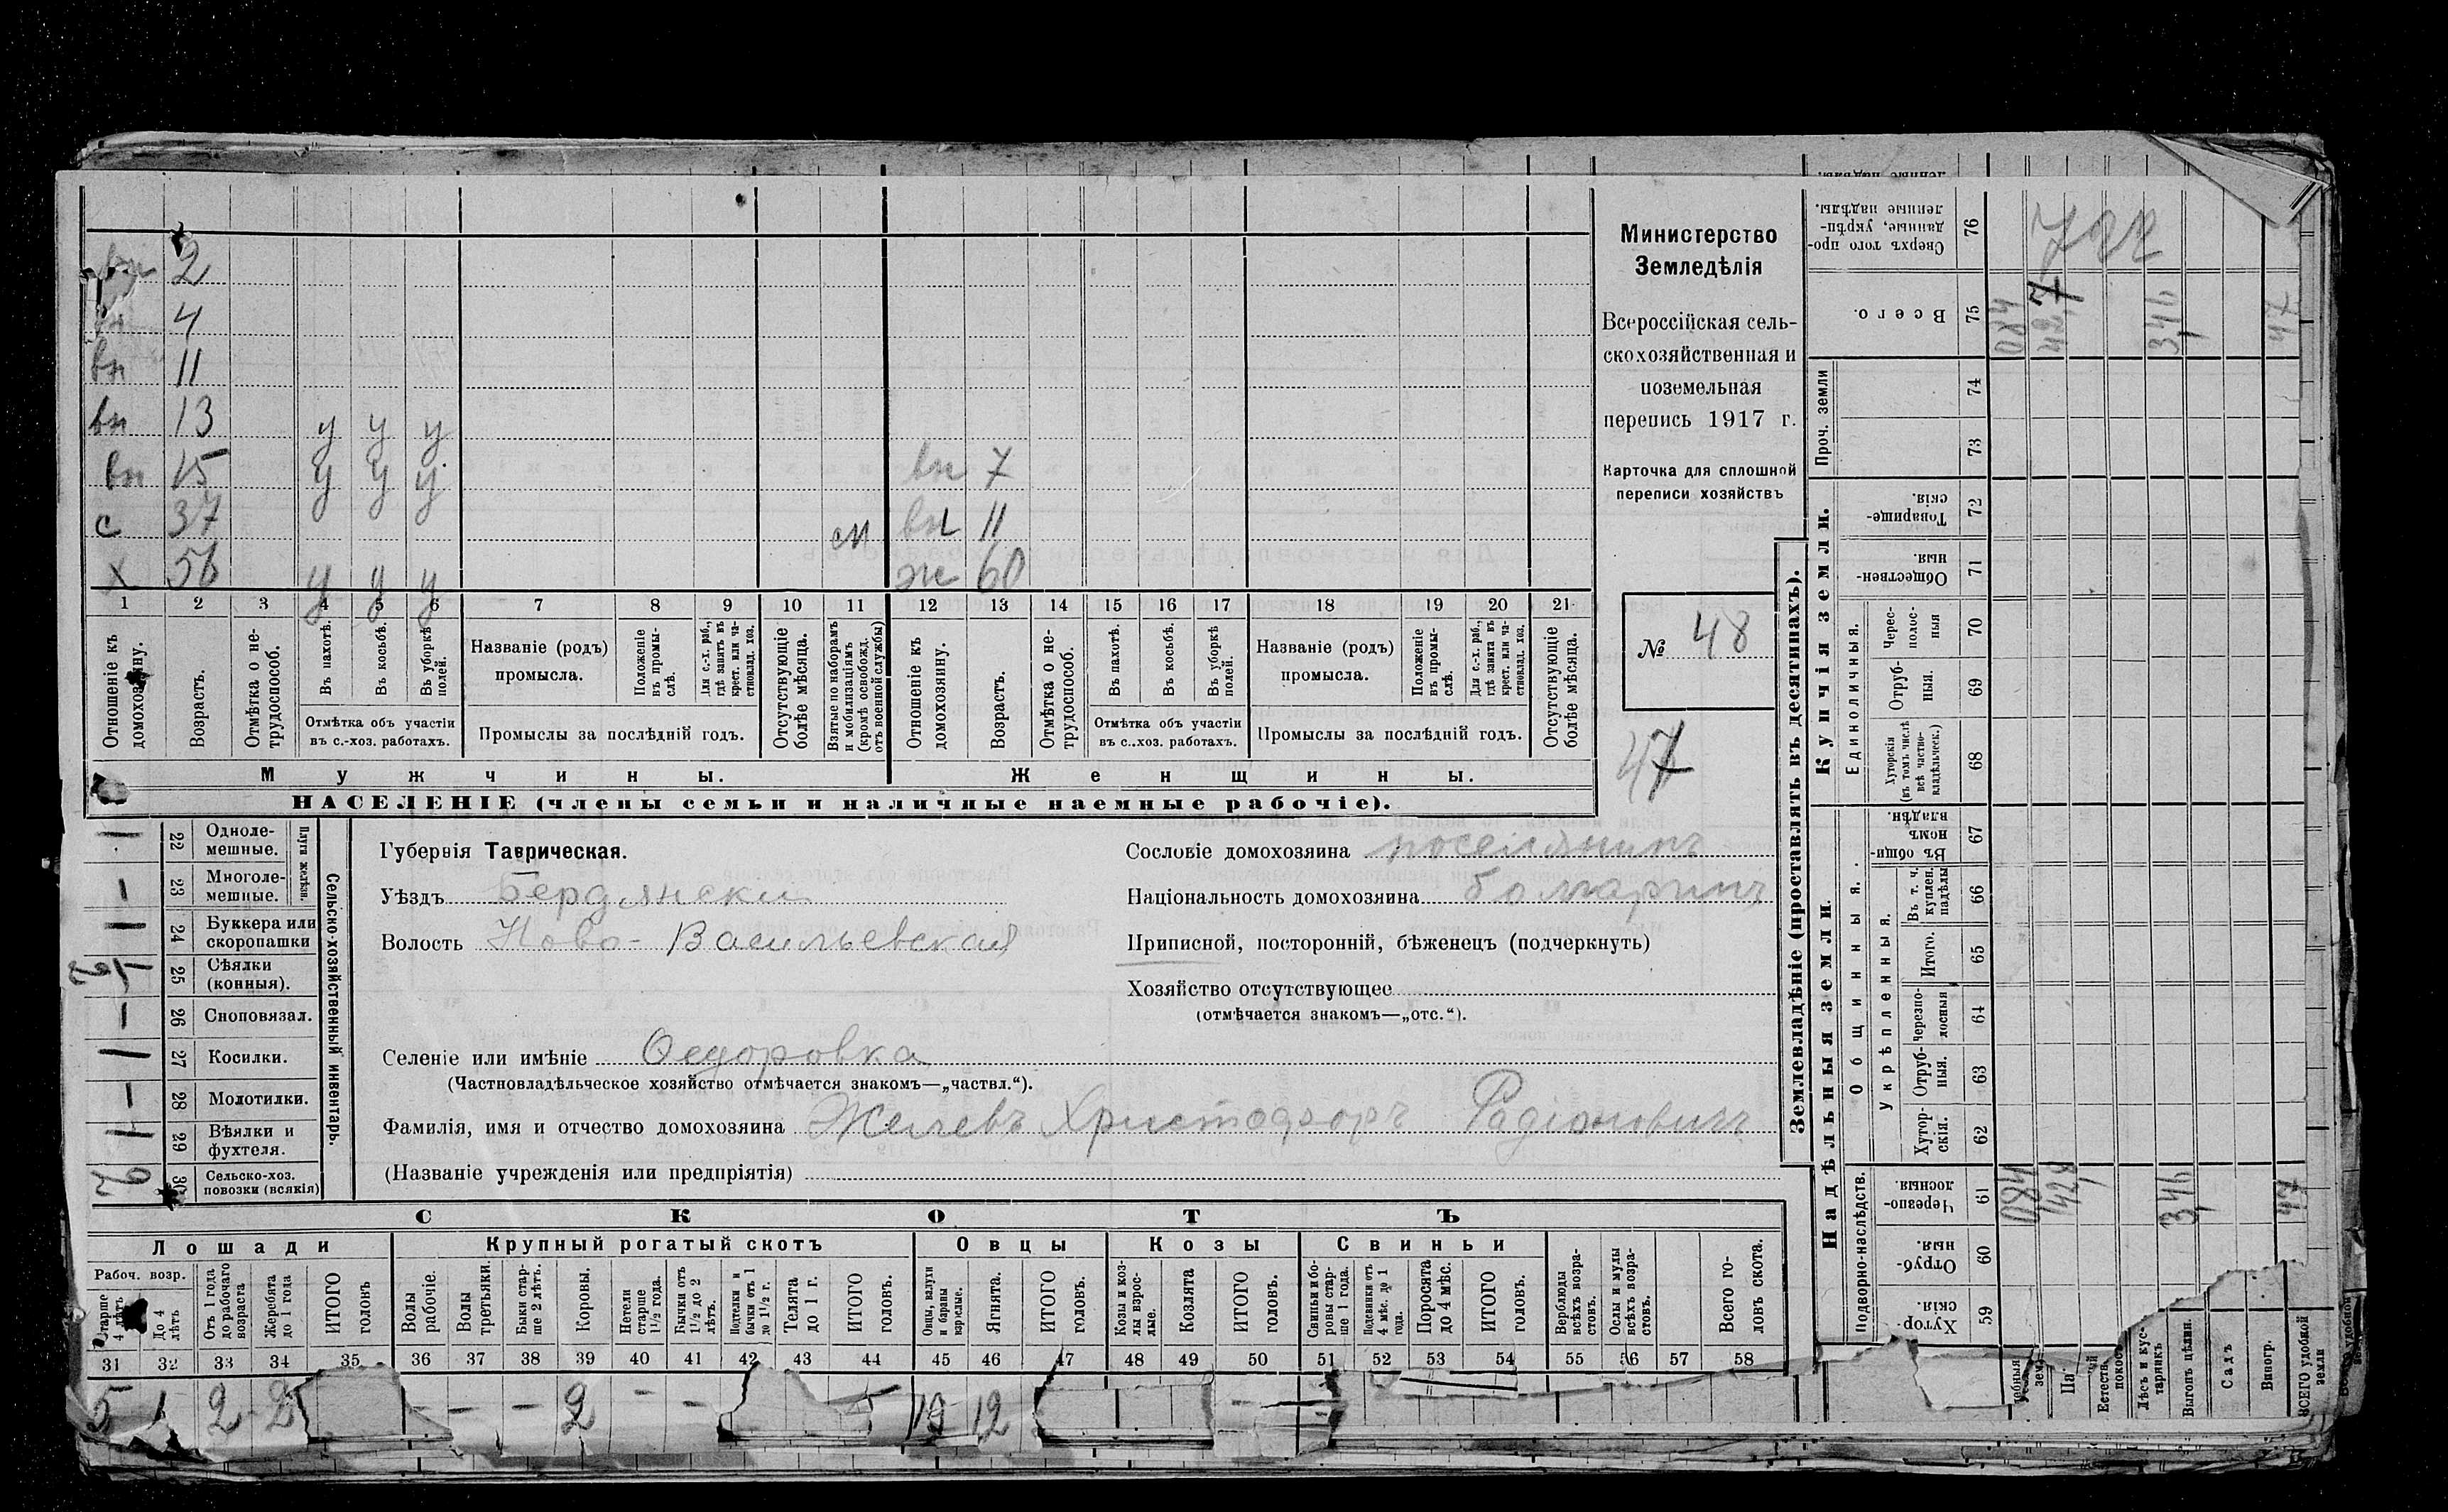 вн 2
4
вн 11
вн 13 у у у
вн 15 у у у вн 7
с 37 см вн 11
х 56 у у у ж 60
1 2 3 4 5 6 7 8 9 10 11 12 13 14 15 16 17 18 19 20 21
Отношеніе къ домохозяину.
Возрастъ.
Отмѣтка о не-
трудоспособ.
Въ пахотѣ.
Въ косьбѣ.
Въ уборкѣ полей.
Отмѣтка объ участіи
въ с.-хоз. работахъ.
Названіе (родъ)
промысла.
Положеніе
въ промы-
слѣ.
Для с.-х. раб.,
гдѣ занятъ въ
крест. или ча-
стновлад. хоз.
Промыслы за послѣдній годъ.
Отсутствующіе
болѣе мѣсяца.
Взятые по наборамъ
и мобилизаціямъ
(кромѣ освобожд.
отъ военной службы)
Отношеніе къ
домохозяину.
Возрастъ.
Отмѣтка о не-
трудоспособ.
Въ пахотѣ.
Въ косьбѣ.
Въ уборкѣ
полей.
Отмѣтка объ участіи
въ с..хоз. работахъ.
Названіе (родъ)
промысла.
Положеніе
въ промы-
слѣ.
Для с.-х. раб.,
гдѣ занята въ
крест. или ча-
стновлад. хоз.
Промыслы за послѣдній годъ.
Отсутствующіе
болѣе мѣсяца.
Мужчины.
Женщины.
НАСЕЛЕНІЕ (члены семьи и наличные наемные рабочіе).
Министерство
Земледѣлія
Всероссійская сель-
скохозяйственная и
поземельная
перепись 1917 г.
Карточка для сплошной
переписи хозяйствъ
№ 48
47
22 Одноле-
мешные.
23 Многоле-
мешные.
Плуги желѣзн.
24 Буккера или
скоропашки
25 Сѣялки
(конныя).
26 Сноповязал.
27 Косилки.
28 Молотилки.
29 Вѣялки и
фухтеля.
30 Сельско-хоз.
повозки (всякія)
Сельско-хозяйственный инвентарь.
Губернія Таврическая.
Уѣздъ Бердянски
Волость Ново-Васильевская
Сословіе домохозяина поселянинъ
Національность домохозяина болгаринъ
Приписной, посторонній, бѣженецъ (подчеркнуть)
Хозяйство отсутствующее
(отмѣчается знакомъ—„отс.“).
Селеніе или имѣніе Федоровка
(Частновладѣльческое хозяйство отмѣчается знакомъ—„частвл.“).
Фамилія, имя и отчество домохозяина Желевъ Христофоръ Радіоновичъ
(Названіе учрежденія или предпріятія)
СКОТЪ
Лошади Крупный рогатый скотъ Овцы Козы Свиньи
Рабоч. возр.
Старше
4 лѣтъ
До 4
лѣтъ
Отъ 1 года
до рабочаго
возраста
Жеребята
до 1 года
ИТОГО
головъ
Волы
рабочіе.
Волы
третьяки.
Быки стар-
ше 2 лѣтъ.
Коровы.
Нетели
старше
1½ года.
Бычки отъ
1½ до 2
лѣтъ.
Подтелки и
бычки отъ 1
до 1½ г.
Телята
до 1 г.
ИТОГО
головъ.
Овцы, валухи
и бараны
взрослые.
Ягнята.
ИТОГО
головъ.
Козы и коз-
лы взрос-
лые.
Козлята
ИТОГО
головъ.
Свиньи и бо-
ровы стар-
ше 1 года.
Подсвинки отъ
4 мѣс. до 1
года.
Поросята
до 4 мѣс.
ИТОГО
головъ.
Верблюды
всѣхъ возра-
стовъ.
Ослы и мулы
всѣхъ возра-
стовъ.
Всего го-
ловъ скота.
31 32 33 34 35 36 37 38 39 40 41 42 43 44 45 46 47 48 49 50 51 52 53 54 55 56 57 58
5 1 2 2 - - - 2 - - 5 19 12 -
Землевладѣніе (проставлять въ десятинахъ).
Надѣльныя земли.
Купчія земли.
Подворно-наслѣдств.
Общинныя.
Укрѣпленныя.
Единоличныя.
Проч. земли
Сверхъ того про-
данные, укрѣп-
ленные надѣлы.
76
722
Всего.
75 084 42,7 3,46 47
74
73
Товарище-
скія.
72
Обществен-
ныя
71
Черес-
полос-
ныя
70
Отруб-
ныя.
69
Хуторскія
(въ томъ числѣ
всѣ частно-
владѣльческ.)
68
Въ общи-
номъ
владѣн.
67
Въ т. ч.
куплен.
надѣлы
66
Итого.
65
Черезпо-
лосныя
64
Отруб-
ныя.
63
Хутор-
скія.
62
Черезпо-
лосныя.
61 084 42,8 3,46 47
Отруб-
ныя
60
Хутор-
скія.
59
Естеств.
покосъ
Лѣсъ и кус-
тарникъ
Выгонъ цѣлин.
Садъ
Виногр.
ВСЕГО удобной
земли